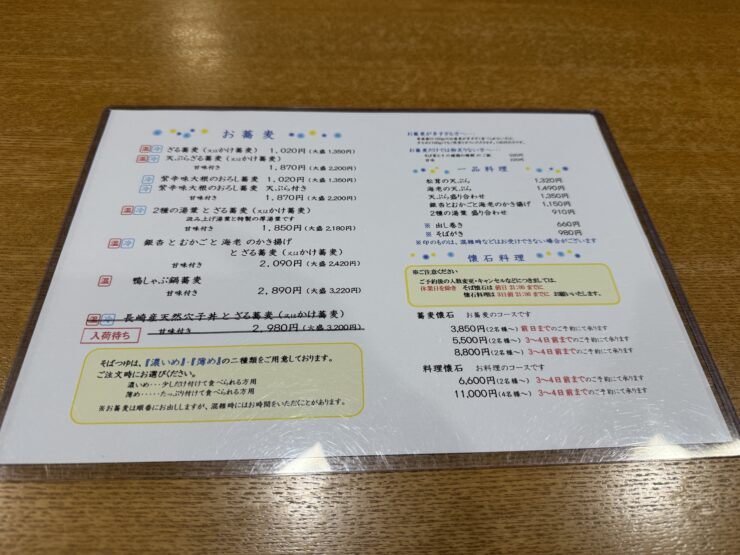 お蕎麦
温 冷 ざる蕎麦(又はかけ蕎麦) 1,020円(大盛1,350円)
温 冷 天ぷらざる蕎麦(又はかけ蕎麦)
甘味付き 1,870円(大盛2,200円)
冷 紫辛味大根のおろし蕎麦 1,020円(大盛1,350円)
冷 紫辛味大根のおろし蕎麦 天ぷら付き
甘味付き 1,870円(大盛2,200円)
温 冷 2種の湯葉とざる蕎麦(又はかけ蕎麦)
汲み上げ湯葉と特製の厚湯葉です
甘味付き 1,850円(大盛2,180円)
温 冷 銀杏とむかごと海老のかき揚げ
とざる蕎麦(又はかけ蕎麦)
甘味付き 2,090円(大盛2,420円)
温 鴨しゃぶ鍋蕎麦
甘味付き 2,890円(大盛3,220円)
温 冷 長崎産天然穴子丼とざる蕎麦(又はかけ蕎麦)
入荷待ち 甘味付き 2,980円(大盛3,200円)
そばつゆは、『濃いめ』・『薄め』の二種類をご用意しております。
ご注文時にお選びください。
濃いめ・・・少しだけ付けて食べられる方用
薄め・・・・・たっぷり付けて食べられる方用
※お蕎麦は順番にお出ししますが、混雑時にはお時間をいただことがあります。
お蕎麦がきすぎる方へ・・・
お蕎麦だけでは物足りない方へ・・・
一品料理
松茸の天ぷら 1,320円
海老の天ぷら 1,490円
天ぷら盛り合わせ 1,350円
銀杏とむかごと海老のかき揚げ 1,150円
2種の湯葉 盛り合わせ 910円
※ 出し巻き 660円
※ そばがき 980円
※印のものは、混雑時などはお受けできない場合がございます
懐石料理
※ご注意ください
ご予約後の人数変更・キャンセルなどにつきましては、
休業日を除き そば懐石は 前日 21:00までに
懐石料理は 3日前 21:00までに お願いいたします。
蕎麦懐石 お蕎麦のコースです
3,850円(2名様~) 前日までのご予約にて承ります
5,500円(2名様~) 3~4日前までのご予約にて承ります
8,800円(2名様~) 3~4日前までのご予約にて承ります
料理懐石 お料理のコースです
6,600円(2名様~) 3~4日前までのご予約にて承ります
11,000円(4名様~) 3~4日前までのご予約にて承ります